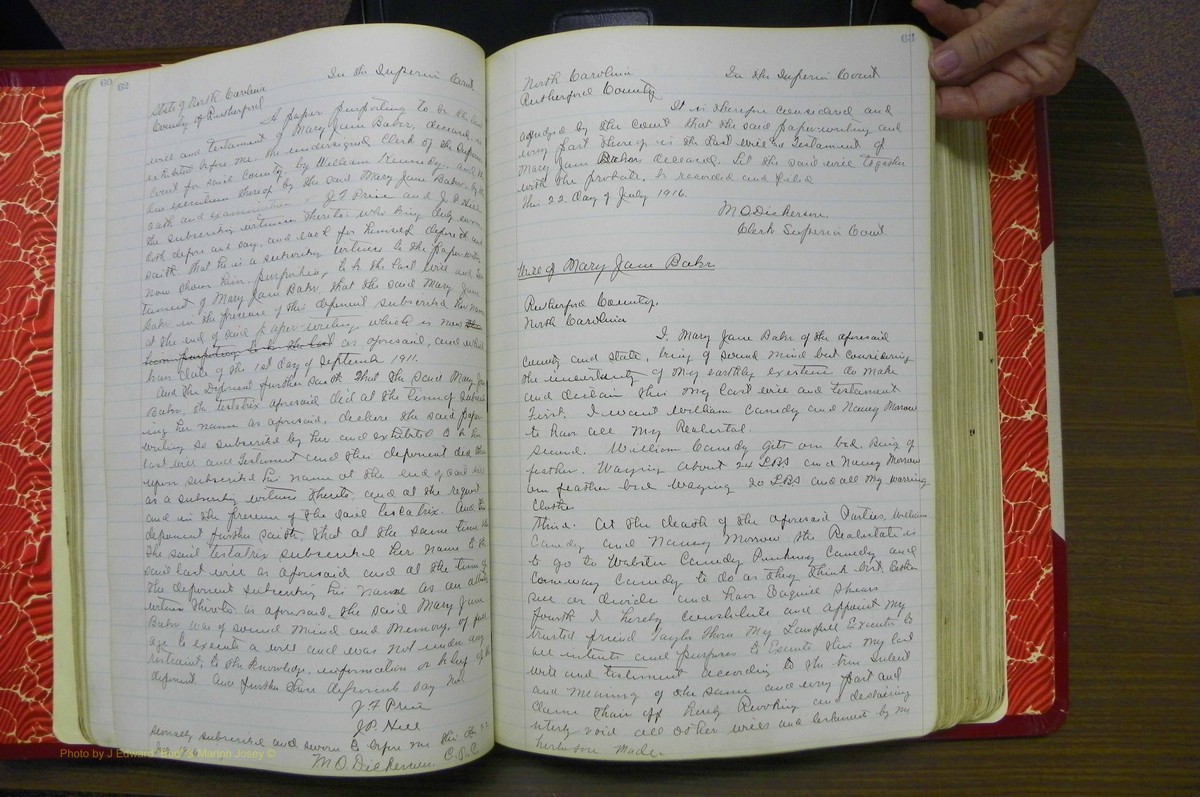 62
In the Superior Court
State of North Carolina
County of Rutherford
A paper purporting to be the last
will and testament of Mary Jane Baber, deceased, is
exhibited before me, the undersigned Clerk of the Superior
Court for said County, by William Kennedy, and the
due execution thereof by the said Mary Jane Baber by the
oath and examination of J F Price and J. P. Hill
the subscribing witnesses thereto who being duly sworn
doth depose and say, and each for himself deposeth and
saith that he is a subscribing witness to the paper writing
now shown him, purporting to be the last will and tes
tament of Mary Jane Baber, that the said Mary Jane
Baber in the presence of this deponent subscribed her name
at the end of said paper-writing which is now
as aforesaid, and which
bears date of the 1st day of September 1911.
And the Deponent further saith, That the said Mary Jane
Baber, the testatrix aforesaid did at the time of subscrib
ing her name as aforesaid, declare the said paper
writing so subscribed by her and exhibited to be her
last will and Testament and this deponent did there
upon subscribed his name at the end of said will
as a subscribing witness thereto and at the request
and in the presence of the said testatrix. And this
deponent further saith, that at the same time
the said testatrix subscribed her name to the
said last will as aforesaid and at the time of
the deponent subscribing his name as an attesting
witness thereto as aforesaid, the said Mary Jane
Baber was of sound mind and memory, of full
age to execute a will and was not under any
restraint, to the knowledge, information or belief of the
deponent And further these deponents say not
J F Price
J P Hill
severally subscribed and sworn to before me this the 22
M. O. Dickerson C. S. C.
63
North Carolina
In the Superior Court
Rutherford County
It is therefore considered and
adjudged by the court that the said paper-writing and
every part thereof is the Last will and Testament of
Mary Jane Baber deceased. Let the said will together
with the probate, be recorded and filed
This 22 day of July 1916.
M. O. Dickerson
Clerk Superior Court
Will of Mary Jane Baber
Rutherford County,
North Carolina
I, Mary Jane Baber of the aforesaid
county and state, being of sound mind but considering
the uncertainty of my earthly existence do make
and declare this my last will and testament
First. I want William Canedy and Nancy Morrow
to have all my Realestate.
second. William Canedy gits one bed. Being of
feather. Waying about 24 LBS and Nancy Morrow
one feather bed waying 20 LBS and all my warring
clothes
Third. At the death of the aforesaid Parties, William
Canedy and Nancy Morrow the Realestate is
to go to Webster Canedy Canedy and
Conway Canedy to do as they think best
see or divide and have Equiel Shears
fourth I hereby constitute and appoint my
trusted friend Taylor my Lawfull Executor to
all intents and purposes to Execute this my last
will and testament according to the true intent
and meaning of the same and every part and
clause thair off hereby Revoking and declaring
utterly void all other wills and testament by me
heretofore made.
Photo by J Edward "Bud" & Marion Josey ©